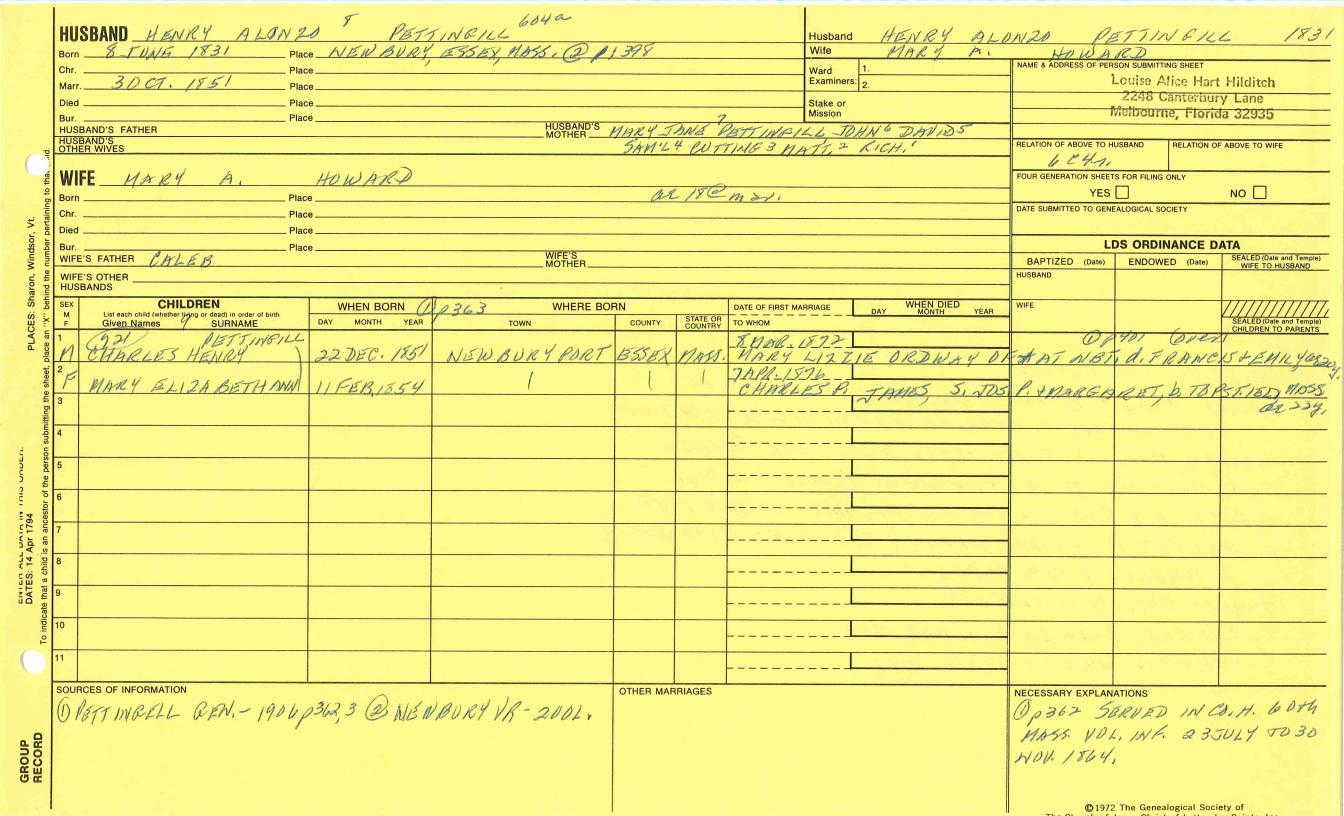 HUSBAND HENRY ALONZO 8 PETTINGILL 604a
Born 8 JUNE 1831 Place NEWBURY, ESSEX, MASS. ② p1399
Chr. Place
Marr. 3 OCT. 1851 Place
Died Place
Bur. Place
HUSBAND'S FATHER HUSBAND'S MOTHER MARY JANE 7 PETTINGILL JOHN 6 DAVID 5
HUSBAND'S OTHER WIVES SAM'L 4 CUTTING 3 MATT. 2 RICH. 1
Husband HENRY ALONZO PETTINGILL 1831
Wife MARY A. HOWARD
Ward Examiners: 1.
2.
Stake or Mission
NAME & ADDRESS OF PERSON SUBMITTING SHEET
Louise Alice Hart Hilditch
2248 Canterbury Lane
Melbourne, Florida 32935
RELATION OF ABOVE TO HUSBAND RELATION OF ABOVE TO WIFE
6 C4r.
FOUR GENERATION SHEETS FOR FILING ONLY
YES NO
DATE SUBMITTED TO GENEALOGICAL SOCIETY
WIFE MARY A. HOWARD
Born Place ae 18 @ mar.
Chr. Place
Died Place
Bur. Place
WIFE'S FATHER CALEB WIFE'S MOTHER
WIFE'S OTHER HUSBANDS
LDS ORDINANCE DATA
BAPTIZED (Date) ENDOWED (Date) SEALED (Date and Temple) WIFE TO HUSBAND
HUSBAND
WIFE
SEALED (Date and Temple) CHILDREN TO PARENTS
SEX M F
CHILDREN
List each child (whether living or dead) in order of birth
Given Names 9 SURNAME
WHEN BORN ① p363
DAY MONTH YEAR
WHERE BORN
TOWN COUNTY STATE OR COUNTRY
DATE OF FIRST MARRIAGE
TO WHOM
WHEN DIED
DAY MONTH YEAR
1 921 PETTINGILL 8 MAR. 1872 ① p401 (over)
M CHARLES HENRY 22 DEC. 1851 NEWBURYPORT ESSEX MASS. MARY LIZZIE ORDWAY OF & AT NBT, d. FRANCIS & EMILY
2 7 APR. 1876
F MARY ELIZABETH ANN 11 FEB, 1854 | | | CHARLES P. JAMES, S. JOS P. & MARGARET, b. TOPSFIELD, MASS
ae 22y.
3
4
5
6
7
8
9
10
11
SOURCES OF INFORMATION
① PETTINGELL GEN. - 1906 p362,3 ② NEWBURY VR - 2 VOL.
OTHER MARRIAGES
NECESSARY EXPLANATIONS
① p362 SERVED IN CO. H. 60th
MASS. VOL. INF. 23 JULY TO 30
NOV. 1864.
©1972 The Genealogical Society of
PLACES: Sharon, Windsor, Vt.
DATES: 14 Apr 1794
To indicate that a child is an ancestor of the person submitting the sheet, place an "X" behind the number pertaining to that
GROUP RECORD